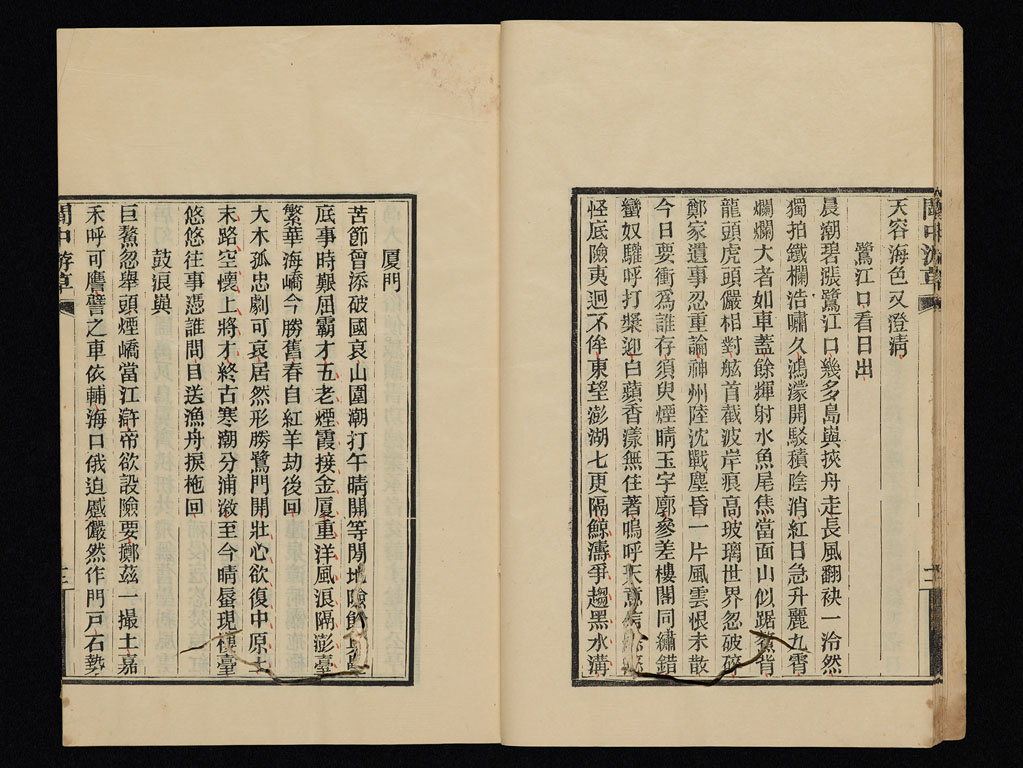 天容海色又澄淸
鷺江口看日出
晨潮碧漲鷺江口幾多島與挾舟走長風翻袂一泠然
獨拍鐵欄浩嘯久鴻濛開駁積陰消紅日急升麗九霄
爛爛大者如車蓋餘輝射水魚尾焦當面山似踞鰲背
龍頭虎頭儼相對舷首截波岸痕高玻璃世界忽破碎
鄭家遺事忍重論神州陸沈戰塵昏一片風雲恨未散
今日要衝爲誰存須臾煙晴玉宇廓參差樓閣同繡錯
蠻奴驩呼打槳迎白蘋香漾無住著嗚呼天意
怪底險夷迥不侔東望澎湖七更隔鯨濤爭趨黑水溝
閩中游草
十二
厦門
苦節曾添破國哀山圍潮打午晴開等閒地險
底事時艱屈霸才五老煙霞接金厦重洋風浪隔澎臺
繁華海嶠今勝舊春自紅羊劫後回
大木孤忠劇可哀居然形勝鷺門開壯心欲復中原土
末路空懷上將才終古寒潮分浦漵至今晴蜃現樓臺
悠悠往事憑誰問目送漁舟捩柁回
鼓浪嶼
巨鰲忽舉頭煙嶠當江滸帝欲設險要擲茲一撮土嘉
禾呼可譍譬之車依輔海口俄迫蹙儼然作門戸石勢
閩中游草
十三